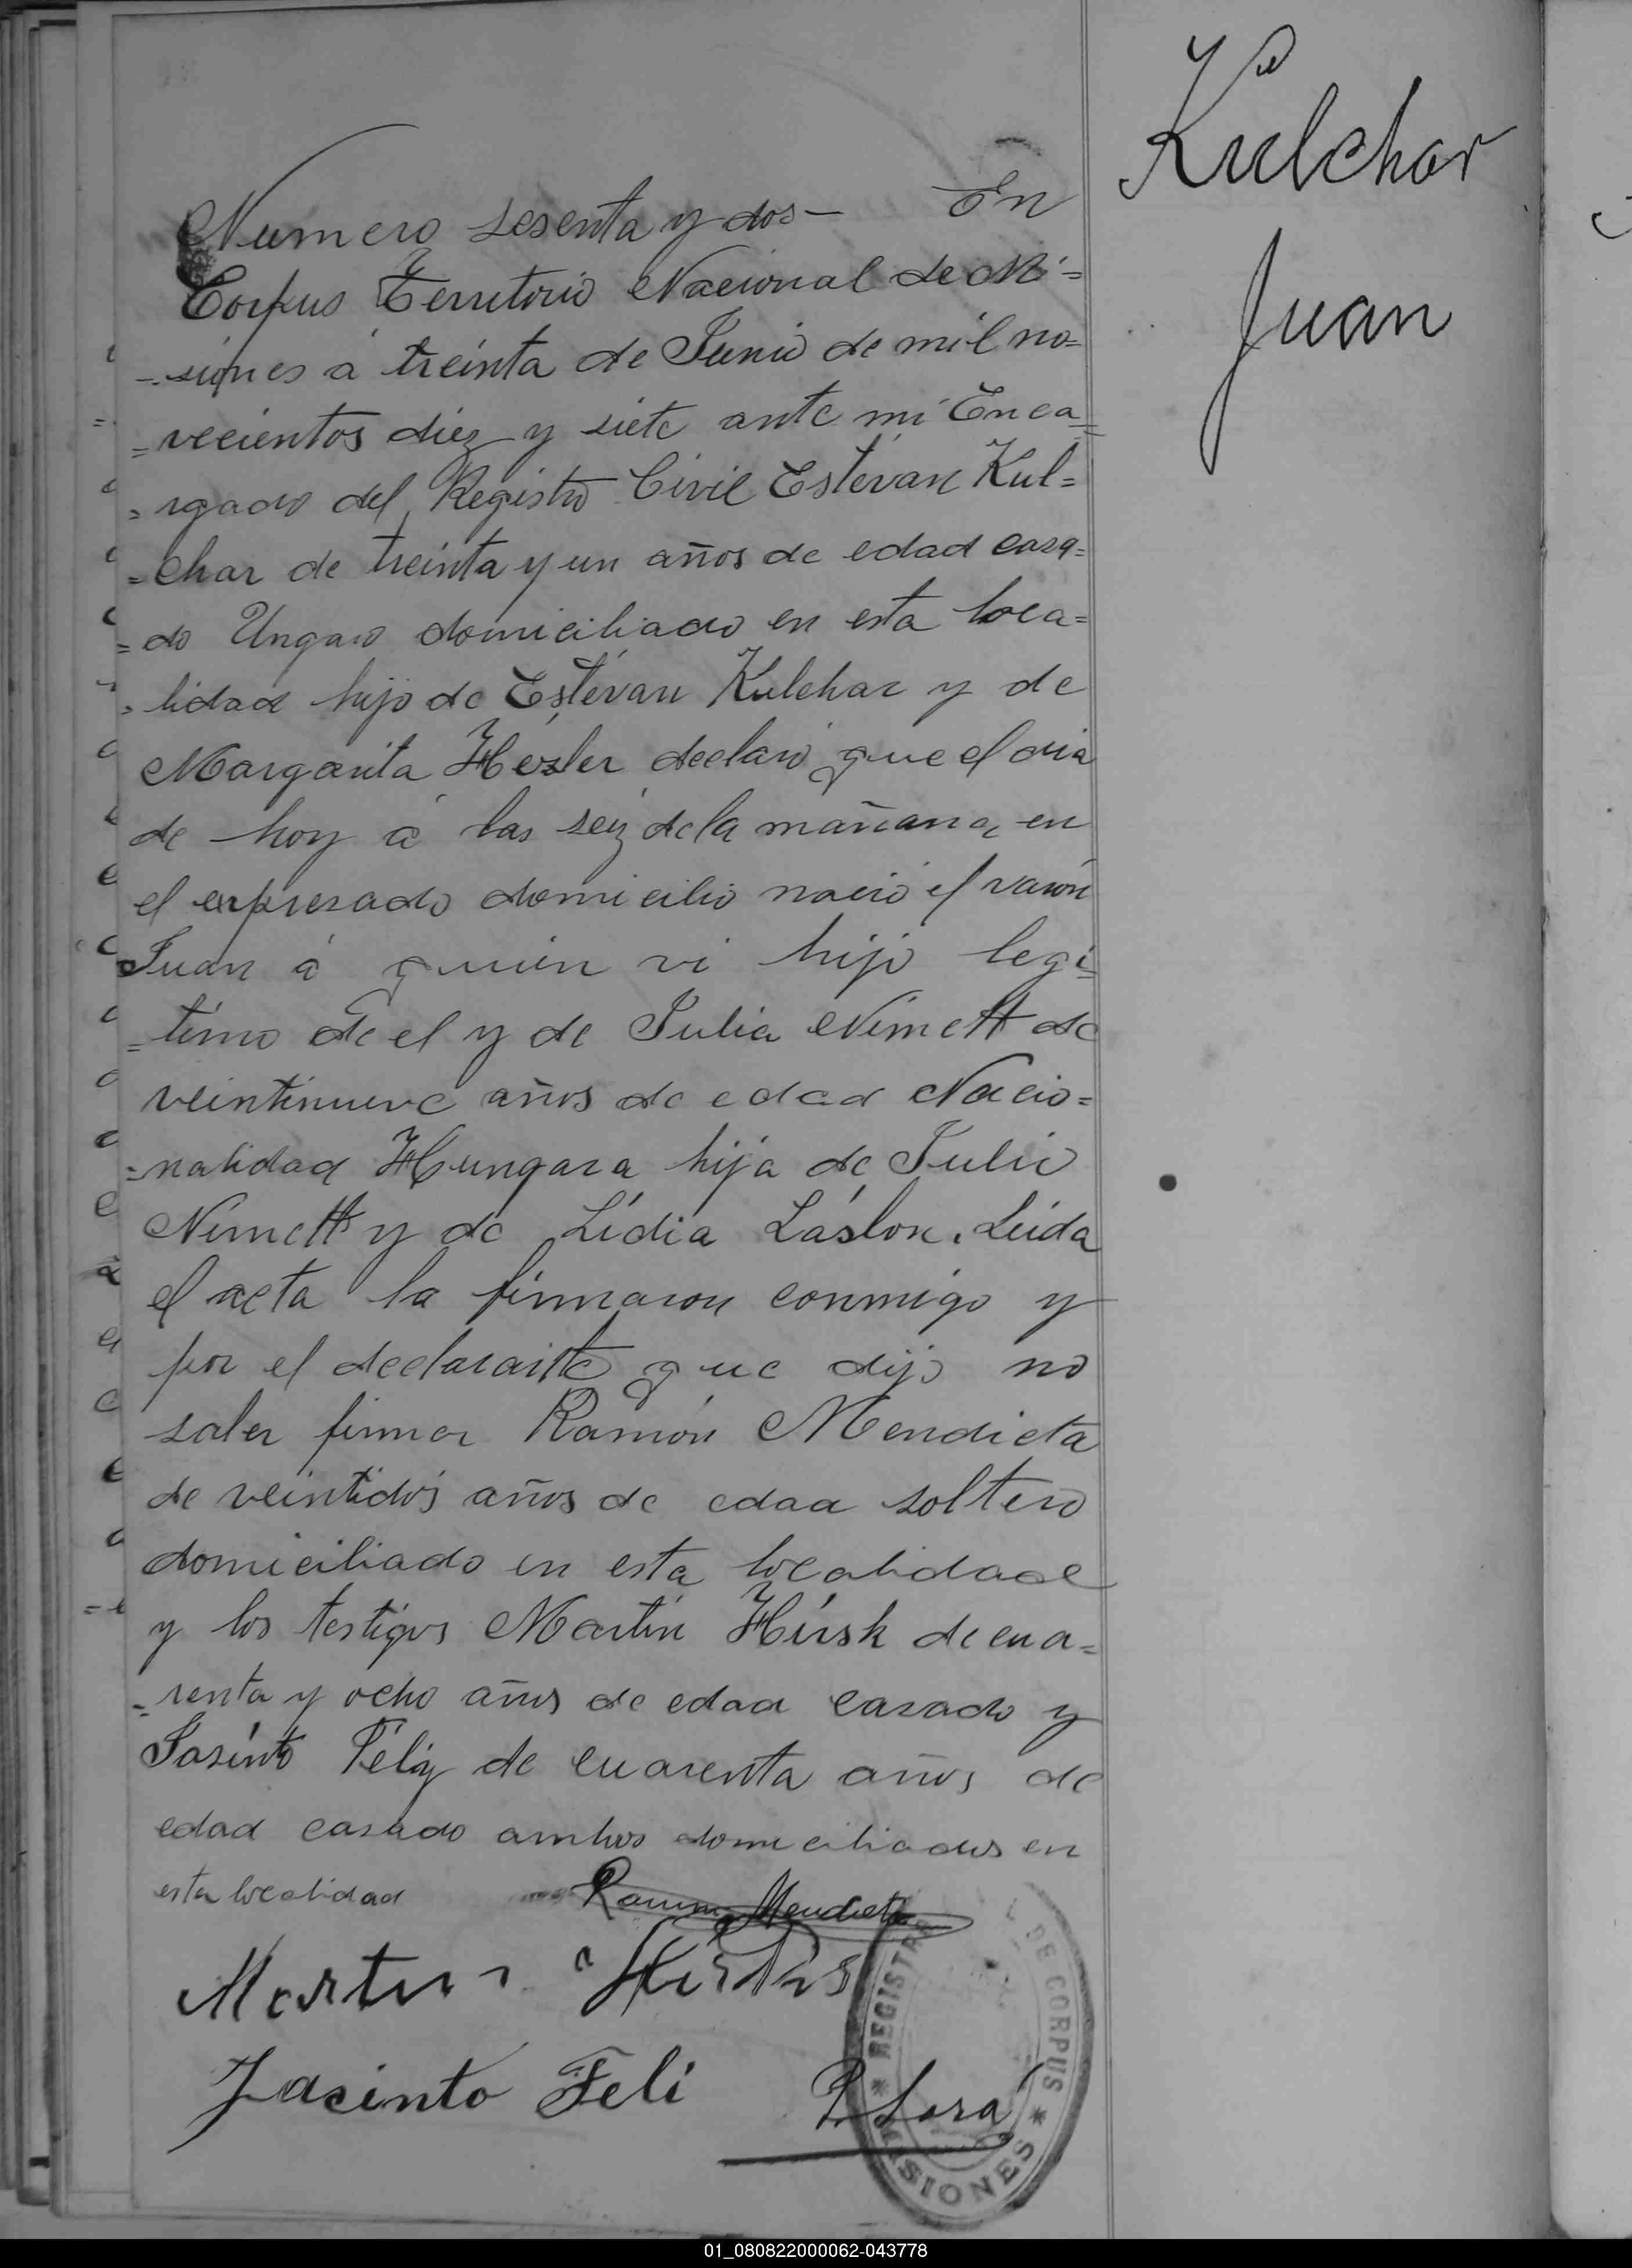 Kulchar
Juan
Numero sesenta y dos— En
Corpus Territorio Nacional de Mi=
=siones á treinta de Junio de mil no=
=vecientos diez y siete ante mi Enca=
=rgado del Registro Civil Estévan Kul=
=char de treinta y un años de edad casa=
=do Ungaro domiciliado en esta loca=
=lidad hijo de Estévan Kulchar y de
Margarita Hezler declaró que el dia
de hoy á las seiz de la mañana, en
el expresado domicilio nació el varón
Juan á quien vi hijo legi=
=timo de el y de Julia Nimett de
veintinueve años de edad Nacio=
=nalidad Hungara hija de Julio
Nimett y de Lidia Láslon. Leida
el acta la firmaron conmigo y
por el declarante que dijo no
saber firmar Ramón Mendieta
de veintidós años de edad soltero
domiciliado en esta localidad
y los testigos Martin Hirsk de cua=
=renta y ocho años de edad casado y
Jasinto Féliz de cuarenta años de
edad casado ambos domiciliados en
esta localidad
Ramon Mendieta
Martin
Jacinto Feli
REGISTRO DE CORPUS
* MISIONES *
01_080822000062-043778